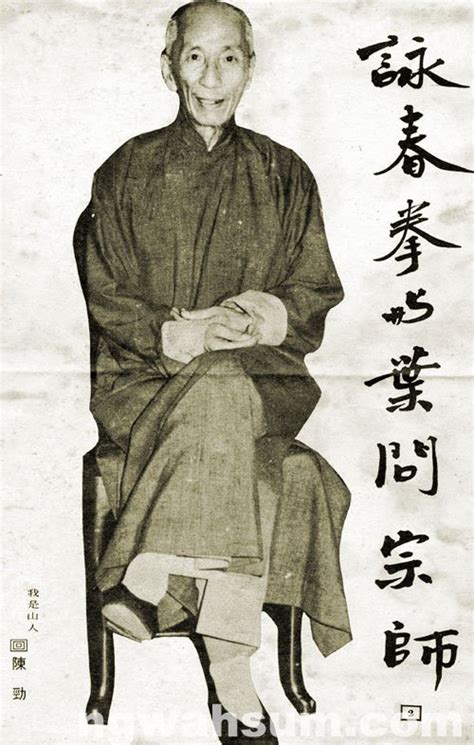 詠春拳與葉問宗師
2
我是山人
回陳勁
ngwahsum.com